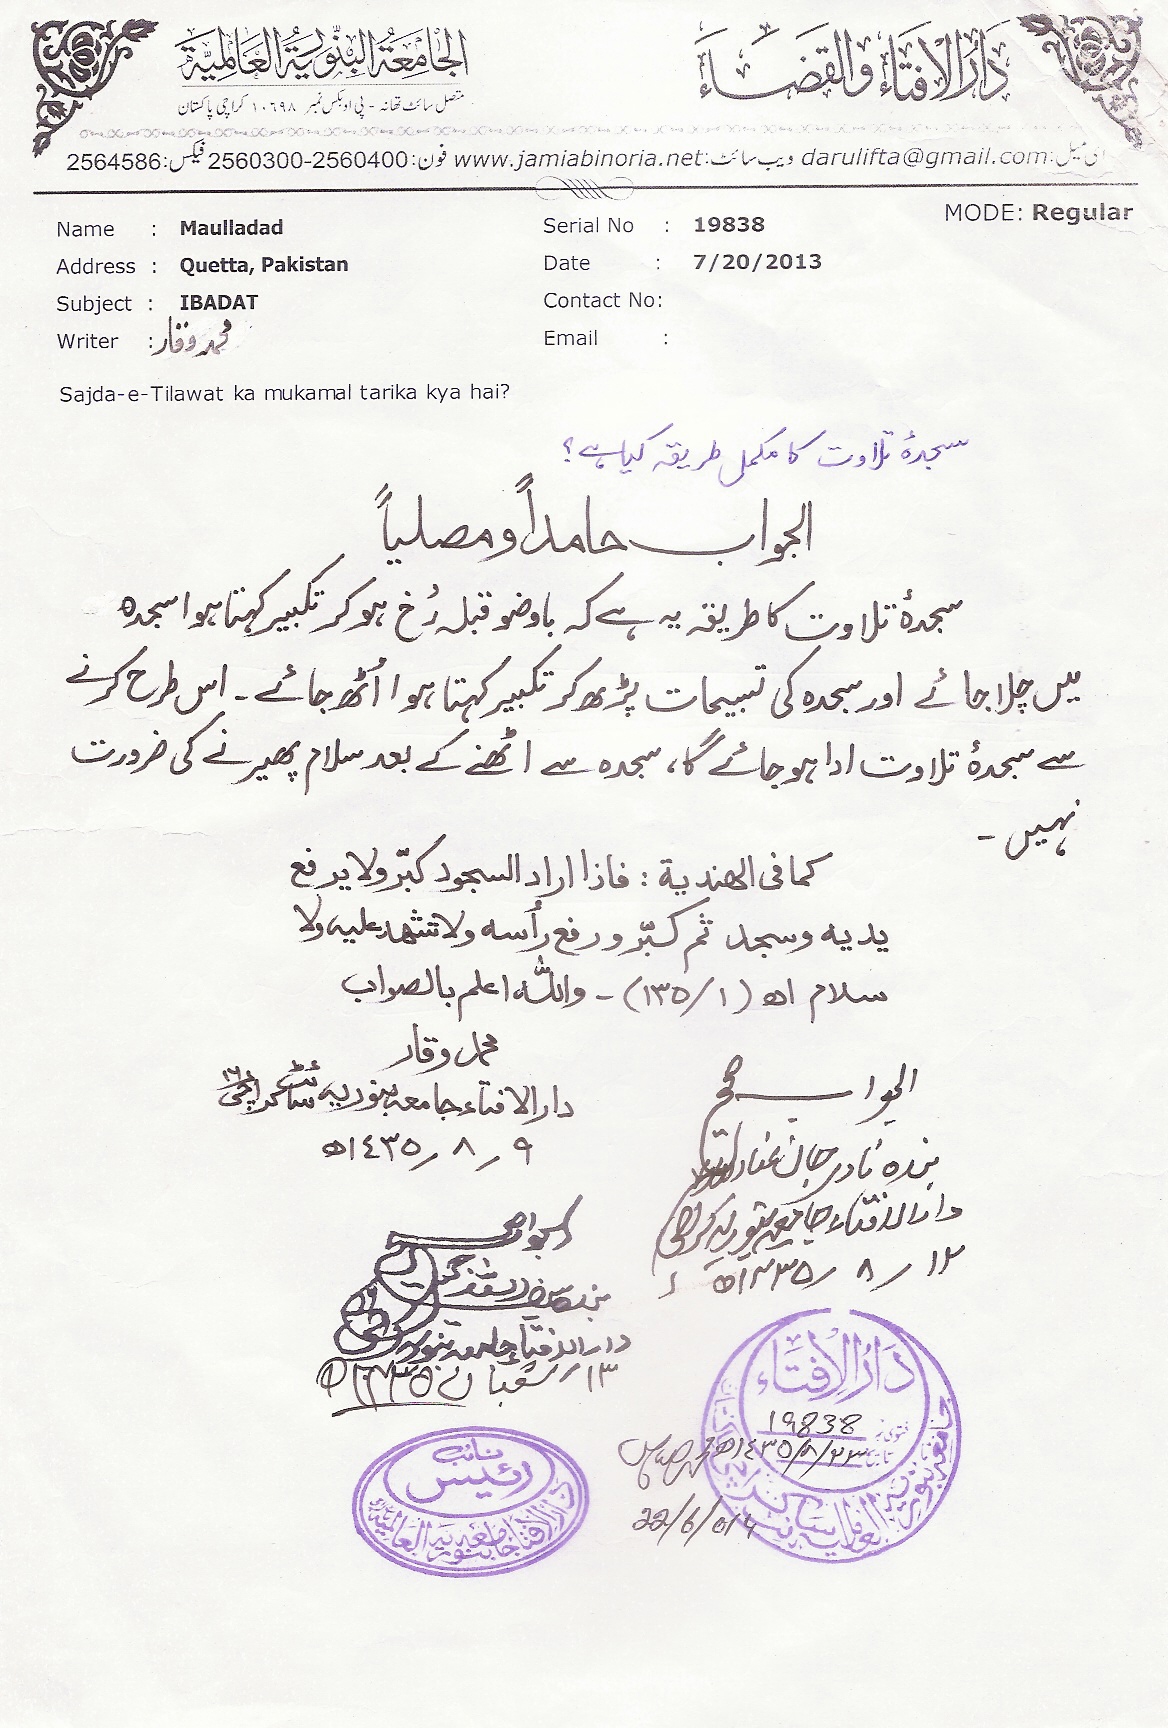 دَارُالْاِفتَاء وَالقَضَاءَ
الجَامِعَةُ البِنّوريَةُ العَالمِيَّة
متصل سائٹ تھانہ - پی او بکس نمبر ۱۰۶۹۸ کراچی پاکستان
ای میل: darulifta@gmail.com ویب سائٹ: www.jamiabinoria.net فون: 2560300-2560400 فیکس: 2564586
MODE: Regular
Name : Maulladad Serial No : 19838
Address : Quetta, Pakistan Date : 7/20/2013
Subject : IBADAT Contact No:
Writer : محمد وقار Email :
Sajda-e-Tilawat ka mukamal tarika kya hai?
سجدۂ تلاوت کا مکمل طریقہ کیا ہے؟
الجواب حامداً و مصلیاً
سجدۂ تلاوت کا طریقہ یہ ہے کہ باوضو قبلہ رُخ ہو کر تکبیر کہتا ہوا سجدہ
میں چلا جائے اور سجدہ کی تسبیحات پڑھ کر تکبیر کہتا ہوا اُٹھ جائے ۔ اس طرح کرنے
سے سجدۂ تلاوت ادا ہو جائے گا، سجدہ سے اٹھنے کے بعد سلام پھیرنے کی ضرورت
نہیں ۔
کما فی الهندیة : فاذا اراد السجود کبّر ولا یرفع
یدیه وسجد ثم کبّر و رفع رأسه ولا تشهد علیه ولا
سلام اھ (۱/۱۳۵) ۔ واللہ اعلم بالصواب
محمد وقار
دارالافتاء جامعہ بنوریہ سائٹ کراچی ۱۶
۹ ؍ ۸ ؍ ۱٤۳۵ھ
الجواب صحیح
بندہ نادر جان
دارالافتاء جامعہ بنوریہ کراچی
۱۲ ؍ ۸ ؍ ۱۴۳۵ھ
الجواب صحیح
بندہ
دارالافتاء جامعہ بنوریہ
۱۳ ؍ شعبان ۱۴۳۵ھ
دَارُالْاِفتَاء
فتویٰ نمبر 19838
تاریخ ۲۳/۸/۱٤۳۵ھ
22/6/014
نائب
رئیس
دارالافتا جامعہ بنوریہ العالمیہ